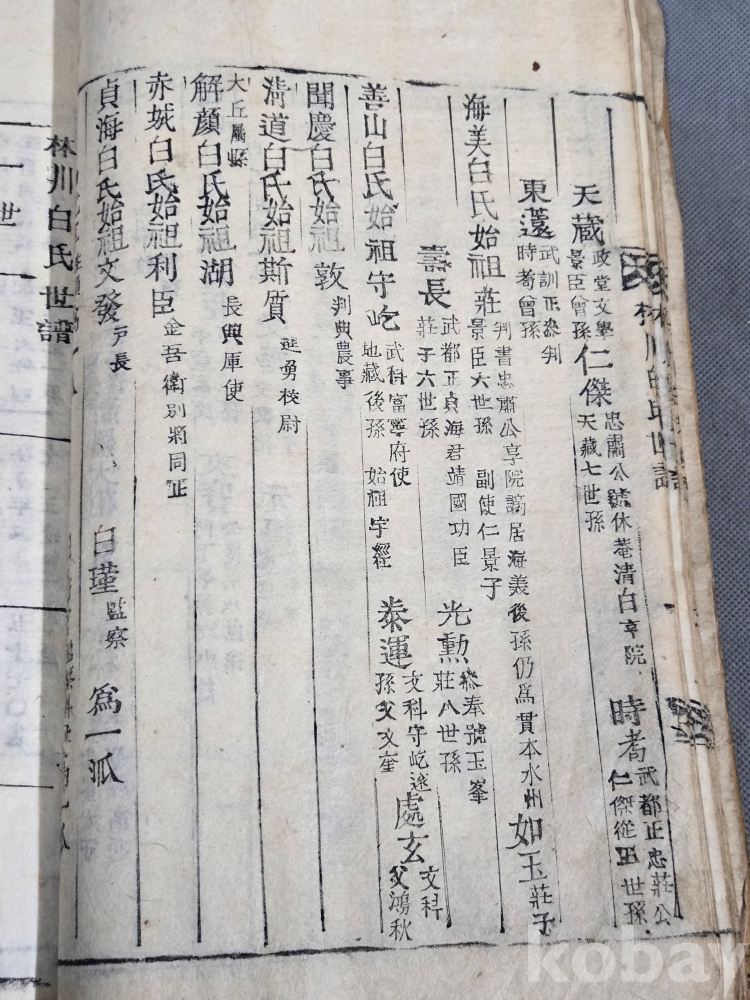 林川白氏世譜
天蔵 政堂文學 景臣曾孫 仁傑 忠肅公號休菴清白享院 天蔵七世孫 時耈 武都正忠莊公 仁傑從五世孫
東還 武訓正叅判 時耈曾孫
海美白氏始祖莊 判書忠肅公享院謫居海義後孫仍爲貫本水州 景臣六世孫 副使仁景子 如玉 莊子
壽長 武都正貞海君靖國功臣 莊子六世孫 光勲 叅奉號玉峯 莊八世孫
善山白氏始祖守屹 武科富寧府使 地蔵後孫 始祖宇經 泰運 文科守屹 孫父文奎 處玄 文科 父鴻秋
聞慶白氏始祖敦 判典農事
淸道白氏始祖斯質 進勇校尉
大丘屬縣
解顔白氏始祖湖 長興庫使
赤城白氏始祖利臣 金吾衛別將同正
貞海白氏始祖文發 戶長 白瑾 監察 爲一派
林川白氏世譜
一世
kobay